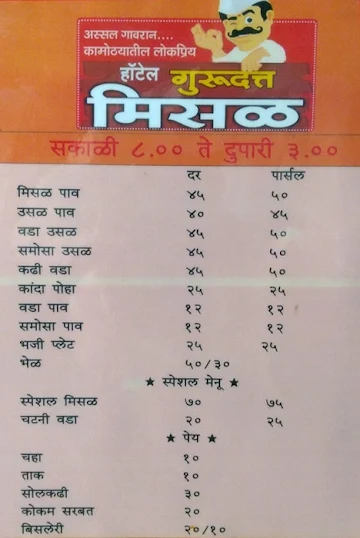 अस्सल गावरान....
कामोठ्यातील लोकप्रिय
हॉटेल गुरूदत्त
मिसळ
सकाळी ८.०० ते दुपारी ३.००
दर पार्सल
मिसळ पाव ४५ ५०
उसळ पाव ४० ४५
वडा उसळ ४५ ५०
समोसा उसळ ४५ ५०
कढी वडा ४५ ५०
कांदा पोहा २५ २५
वडा पाव १२ १२
समोसा पाव १२ १२
भजी प्लेट २५ २५
भेळ ५०/३०
★ स्पेशल मेनू ★
स्पेशल मिसळ ७० ७५
चटनी वडा २० २५
★ पेय ★
चहा १०
ताक १०
सोलकढी ३०
कोकम सरबत २०
बिसलेरी २०/१०